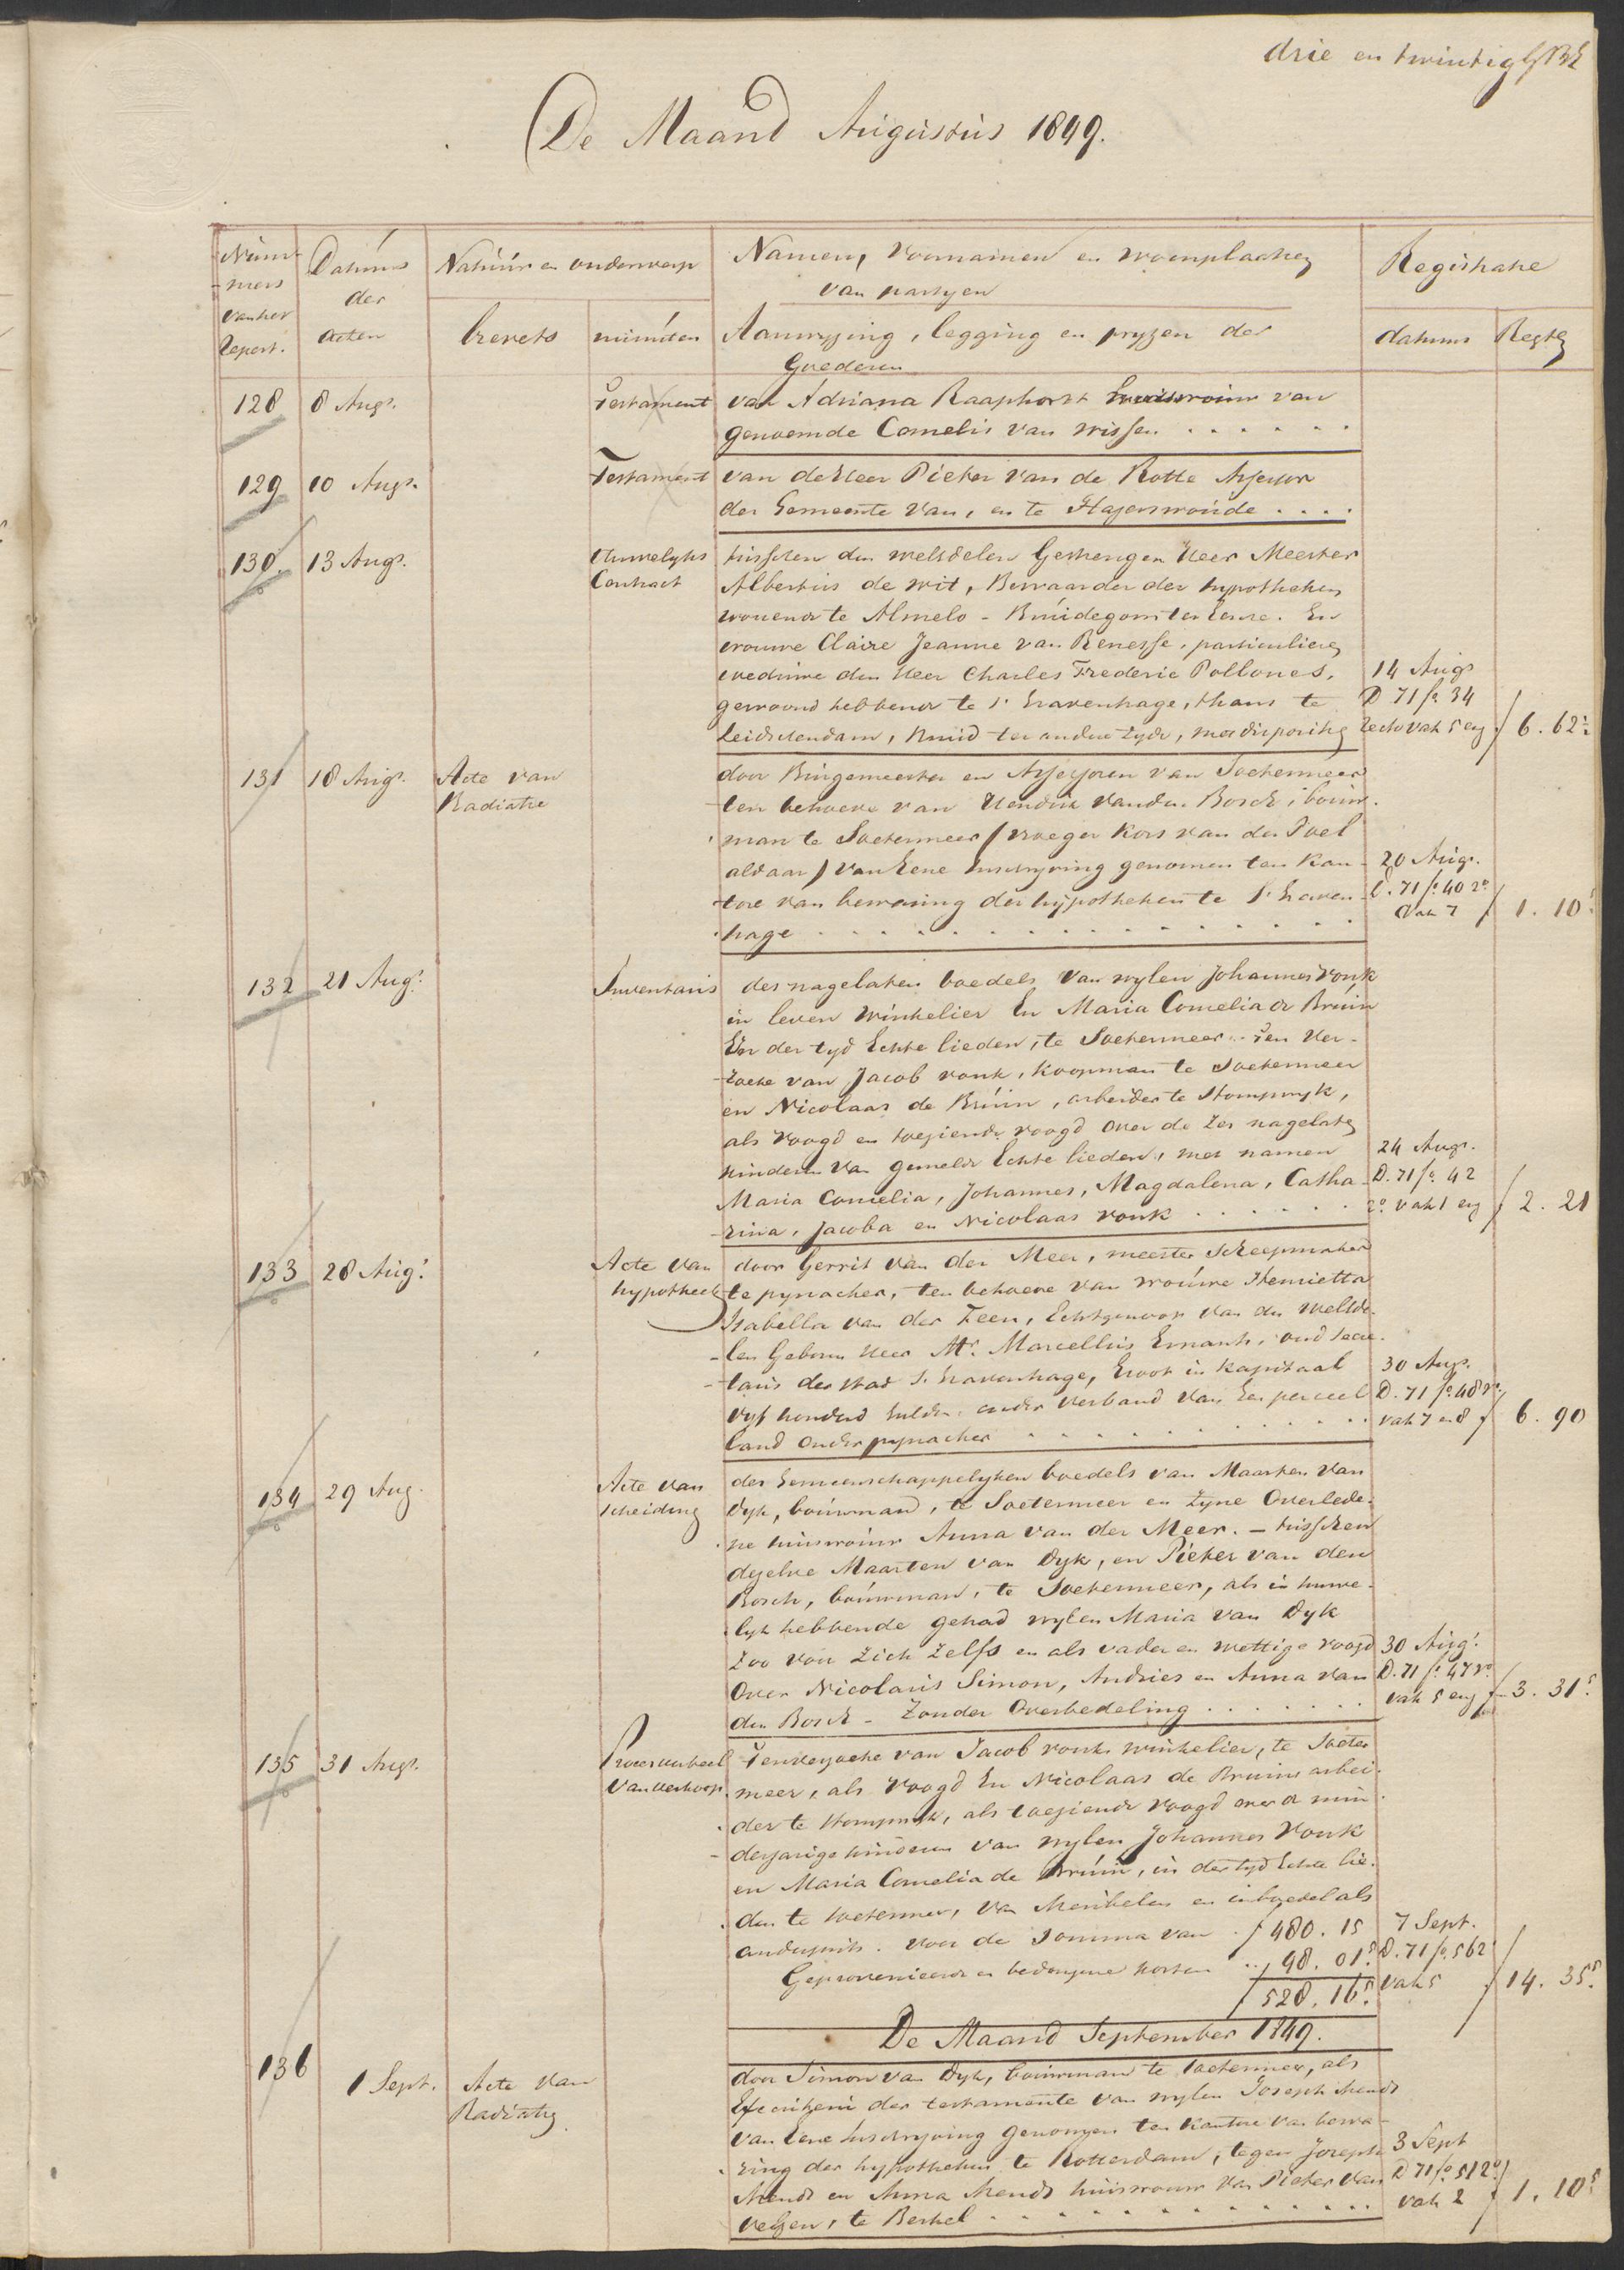 drie en twintig
De Maand Augustus 1849.
Num-
mers
van het
Repert.
Datums
der
acten
Natuur en onderwerp
brevets
minuten
Namen, voornamen en woonplaatsen
van partyen
Aanwyzing, legging en pryzen der
Goederen
Registratie
datums
Regten
128 8 Augs. Testament van Adriana Raaphorst huisvrouw van
genoemde Cornelis van Wissen . . . . . .
129 10 Augs. Testament van de Heer Pieter van de Rotte Assessor
der Gemeente van, en te Hazerswoude . . . .
130. 13 Augs. Huwelyks tusschen den weledelen Gestrengen Heer Meester
Contract Albertus de Wit, Bewaarder der hypotheken
wonende te Almelo - Bruidegom ter Eenre. En
vrouwe Claire Jeanne van Renesse, particuliere
weduwe den Heer Charles Frederic Pollones, 14 Augs
gewoond hebbende te s' Gravenhage, thans te D 71 fo. 34
Leidschendam, Bruid ter andere zyde, met dispositie recto vak 5 en f 6. 62½
131 18 Augs. Acte van door Burgemeester en Assessoren van Soetermeer
Radiatie ten behoeve van Hendrik van den Bosch, bouw-
man te Soetermeer / vroeger Kors van der Poel
aldaar / van Eene Inschryving genomen ten Kan- 20 Augs.
tore van bewaring der hypotheken te s' Graven- D. 71 fo. 40 vo.
hage . . . . . . vak 7 f 1. 10⁵
132 21 Augs. Inventaris des nagelaten boedels van wylen Johannes Vonk
in leven Winkelier En Maria Cornelia de Bruin
In der tyd Echte lieden, te Soetermeer. Ten Ver-
zoeke van Jacob Vonk, Koopman te Soetermeer
en Nicolaas de Bruin, arbeider te Stompwyk,
als Voogd en toeziende voogd over de zes nagelaten
kinderen van gemelde Echte lieden, met namen 24 Augs.
Maria Cornelia, Johannes, Magdalena, Catha- D. 71 fo. 42
rina, Jacoba en Nicolaas Vonk . . . . . . vo. vak 1 en f 2. 21
133 28 Augs. Acte van door Gerrit van der Meer, meester Scheepmaker
hypotheek te pynacker, ten behoeve van vrouwe Henrietta
Isabella van der Feen, Echtgenoot van den Welede-
len Geboren Heer Mr. Marcellus Emants, oud secre-
taris der stad s. Gravenhage, Groot in Kapitaal 30 Augs.
vyf honderd Gulden onder verband van Een perceel D. 71 fo. 48 vo.
land onder pynacker . . . . . . vak 7 en 8 f 6. 90
134 29 Aug. Acte van des Gemeenschappelyken boedels van Maarten van
scheiding Dyk, bouwman, te Soetermeer en Zyne Overlede-
ne huisvrouw Anna van der Meer. - tusschen
dezelve Maarten van Dyk, en Pieter van den
Bosch, bouwman, te Soetermeer, als in huwe-
lyk hebbende gehad wylen Maria van Dyk
Zoo voor Zich Zelfs en als vader en wettige voogd 30 Augs.
Over Nicolaus Simon, Andries en Anna van D. 71 fo. 47 vo.
den Bosch - Zonder Overbedeling . . . . . . vak 5 en f 3. 31⁵
135 31 Augs. Proces verbaal Ten verzoeke van Jacob Vonk Winkelier, te Soeter
van verkoop. meer, als Voogd En Nicolaas de Bruin arbei-
der te Stompwyk, als toeziende Voogd over de min-
derjarige kinderen van wylen Johannes Vonk
en Maria Cornelia de Bruin, in der tyd Echte lie-
den te Soetermeer, van Meubelen en inboedel als
andersints. voor de Somma van . f 480. 15 7 Sept.
Geprovenieerd en bedongene kosten . . , 98. 01⁵ D. 71 fo. 56 2
f 528. 16⁵ vak 5 f 14. 35⁵
De Maand September 1849.
136 1 Sept. Acte van door Simon van Dyk, bouwman te Soetermeer, als
Radiatie Executeur der testamente van wylen Joseph Mends
van Eene Inschryving genomen ten Kantore van bewa-
ring der hypotheken te Rotterdam, tegen Joseph 3 Sept
Mends en Anna Mends huisvrouw van Pieter van D 71 fo. 51 2o
Velzen, te Berkel . . . . . . vak 2 f 1. 10⁵